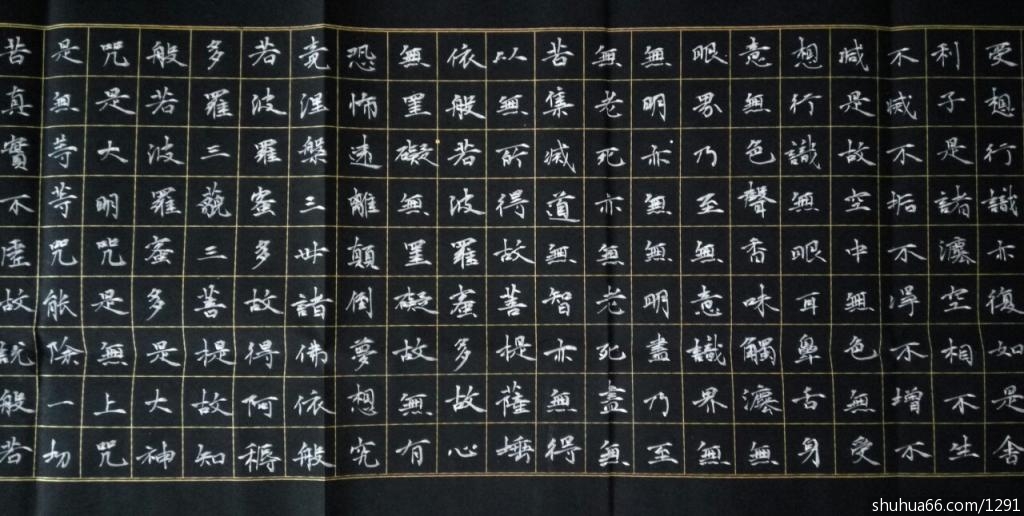 受想行識亦復如是舍
利子是諸灋空相不生
不滅不垢不淨不增不
減是故空中無色無受
想行識無眼耳鼻舌身
意無色聲香味觸灋無
眼界乃至無意識界無
無明亦無無明盡乃至
無老死亦無老死盡無
苦集滅道無智亦無得
以無所得故菩提薩埵
依般若波羅蜜多故心
無罣礙無罣礙故無有
恐怖遠離顛倒夢想究
竟涅槃三世諸佛依般
若波羅蜜多故得阿耨
多羅三藐三菩提故知
般若波羅蜜多是大神
咒是大明咒是無上咒
是無等等咒能除一切
苦真實不虛故說般若
shuhua66.com/1291